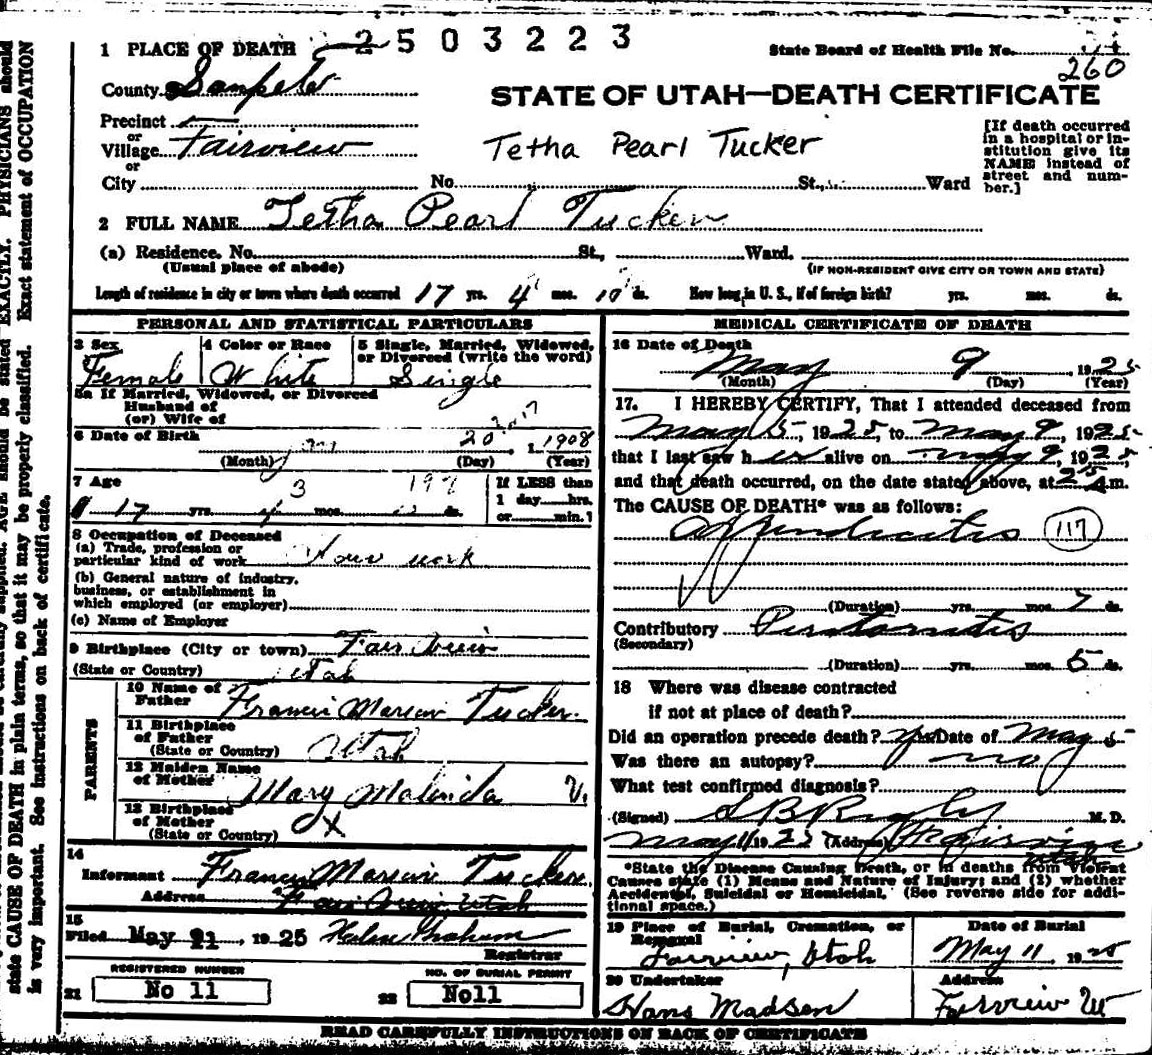 1 PLACE OF DEATH 2503223
State Board of Health File No.
260
County Sanpete
STATE OF UTAH—DEATH CERTIFICATE
Precinct
or
Village Fairview
or
City
Tetha Pearl Tucker
No. St., Ward
[If death occurred
in a hospital or in-
stitution give its
NAME instead of
street and num-
ber.]
2 FULL NAME Tetha Pearl Tucker
(a) Residence. No. St., Ward.
(Usual place of abode)
(IF NON-RESIDENT GIVE CITY OR TOWN AND STATE)
Length of residence in city or town where death occurred 17 yrs. 4 mos. ds. How long in U. S., if of foreign birth? yrs. mos. ds.
PERSONAL AND STATISTICAL PARTICULARS
3 Sex
Female
4 Color or Race
White
5 Single, Married, Widowed,
or Divorced (write the word)
Single
5a If Married, Widowed, or Divorced
Husband of
(or) Wife of
6 Date of Birth
20, 1908
(Month) (Day) (Year)
7 Age
17 yrs. mos. ds.
If LESS than
1 day hrs.
or min.?
8 Occupation of Deceased
(a) Trade, profession or
particular kind of work work
(b) General nature of industry,
business, or establishment in
which employed (or employer)
(c) Name of Employer
9 Birthplace (City or town) Fairview
(State or Country) Utah
PARENTS
10 Name of
Father Francis Marion Tucker
11 Birthplace
of Father
(State or Country) Utah
12 Maiden Name
of Mother Mary Malinda V.
13 Birthplace
of Mother
(State or Country)
14
Informant Francis Marion Tucker
Address Fairview, Utah
15
Filed May 21, 1925 Helen Graham
Registrar
REGISTERED NUMBER
21 No 11
NO. OF BURIAL PERMIT
22 No11
MEDICAL CERTIFICATE OF DEATH
16 Date of Death
May 9 1925
(Month) (Day) (Year)
17. I HEREBY CERTIFY, That I attended deceased from
May 5, 1925, to May 9, 1925
that I last saw her alive on May 9, 1925,
and that death occurred, on the date stated above, at m.
The CAUSE OF DEATH* was as follows:
Appendicitis 117
(Duration) yrs. mos. 7 ds.
Contributory Peritonitis
(Secondary)
(Duration) yrs. mos. 5 ds.
18 Where was disease contracted
if not at place of death?
Did an operation precede death? yes Date of May 5
Was there an autopsy? no
What test confirmed diagnosis?
(Signed) M. D.
May 11 1925 (Address) Fairview
Utah
*State the Disease Causing Death, or in deaths from Violent
Causes state (1) Means and Nature of Injury; and (2) whether
Accidental, Suicidal or Homicidal. (See reverse side for addi-
tional space.)
19 Place of Burial, Cremation, or
Removal
Fairview, Utah
Date of Burial
May 11 1925
20 Undertaker
Hans Madsen
Address
Fairview Ut
READ CAREFULLY INSTRUCTIONS ON BACK OF CERTIFICATE
state CAUSE OF DEATH in plain terms, so that it may be properly classified. Exact statement of OCCUPATION
is very important. See instructions on back of certificate.